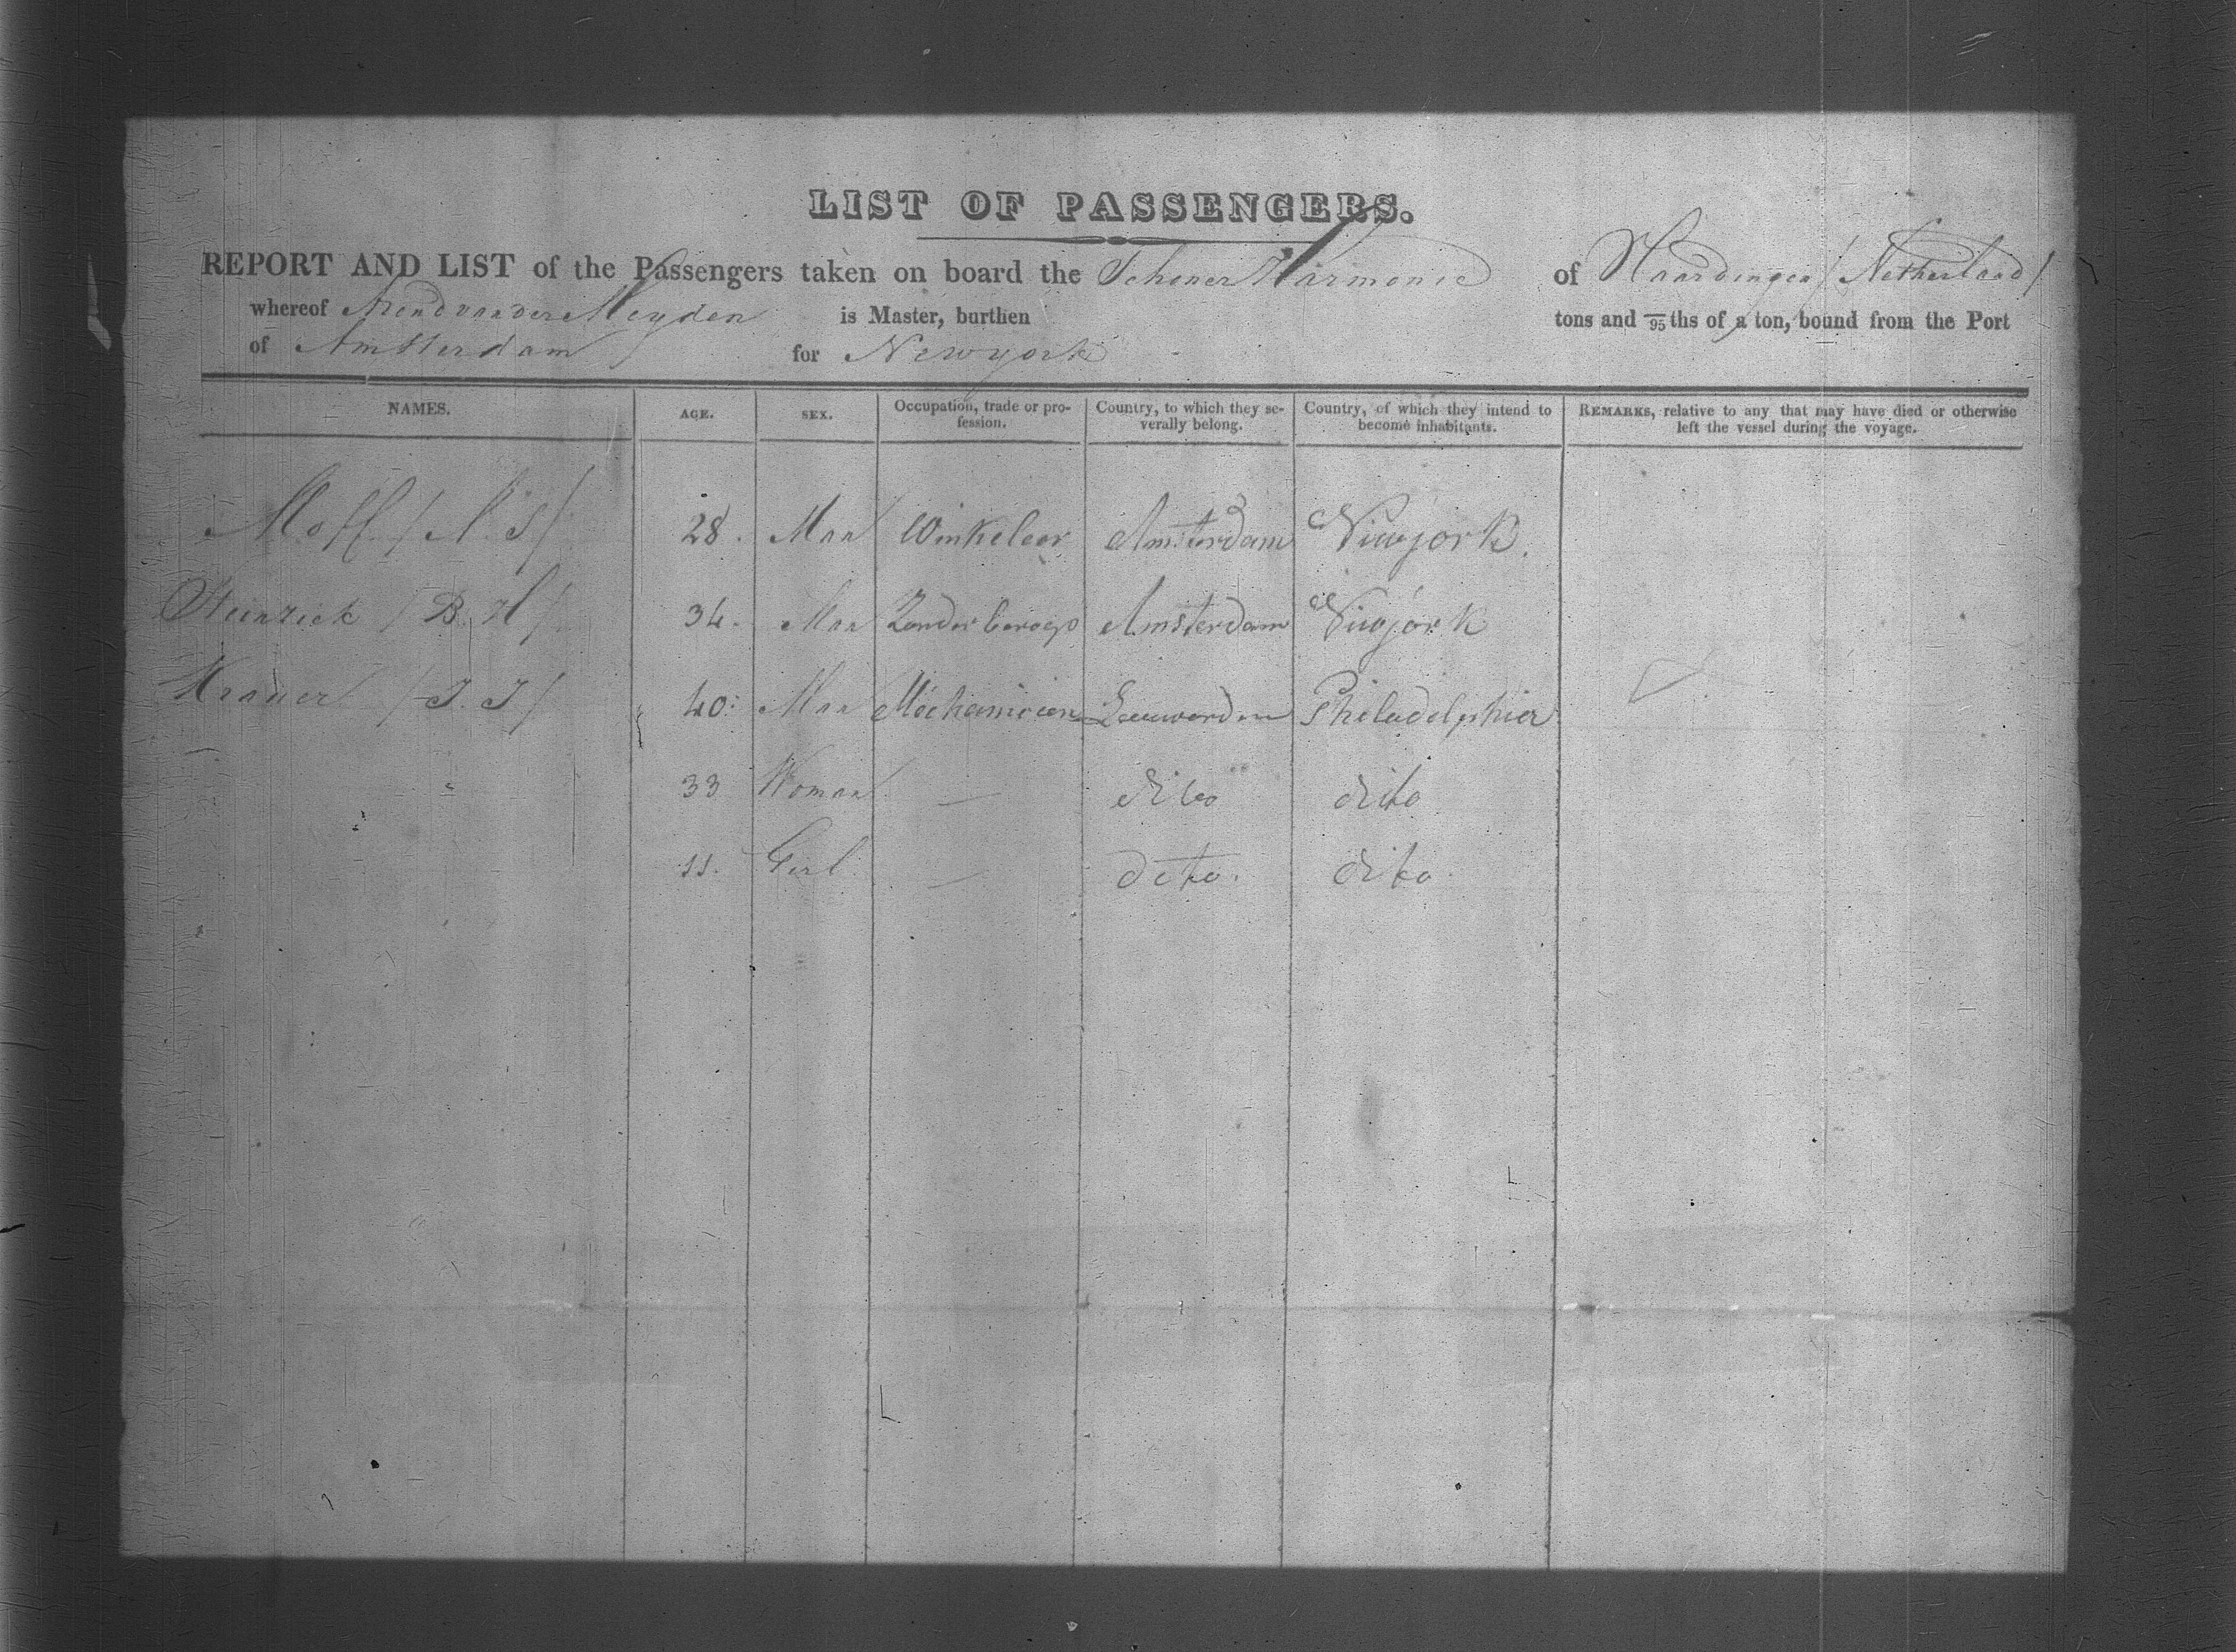 LIST OF PASSENGERS.
REPORT AND LIST of the Passengers taken on board the Schoner Harmonie of Haardingen / Netherland /
whereof Arend van der Meyden is Master, burthen tons and /95 ths of a ton, bound from the Port
of Amsterdam for Newyork
NAMES. AGE. SEX. Occupation, trade or profession. Country, to which they severally belong. Country, of which they intend to become inhabitants. REMARKS, relative to any that may have died or otherwise left the vessel during the voyage.
28. Man Winkeleer Amsterdam Niewjork.
Heinrich / B. H / 34. Man Zonder beroep Amsterdam Niewjork
/ J. J / 40. Man Mechanicien Leeuwarden Philadelphia
" 33 Woman — dito dito
11. Girl — dito. dito